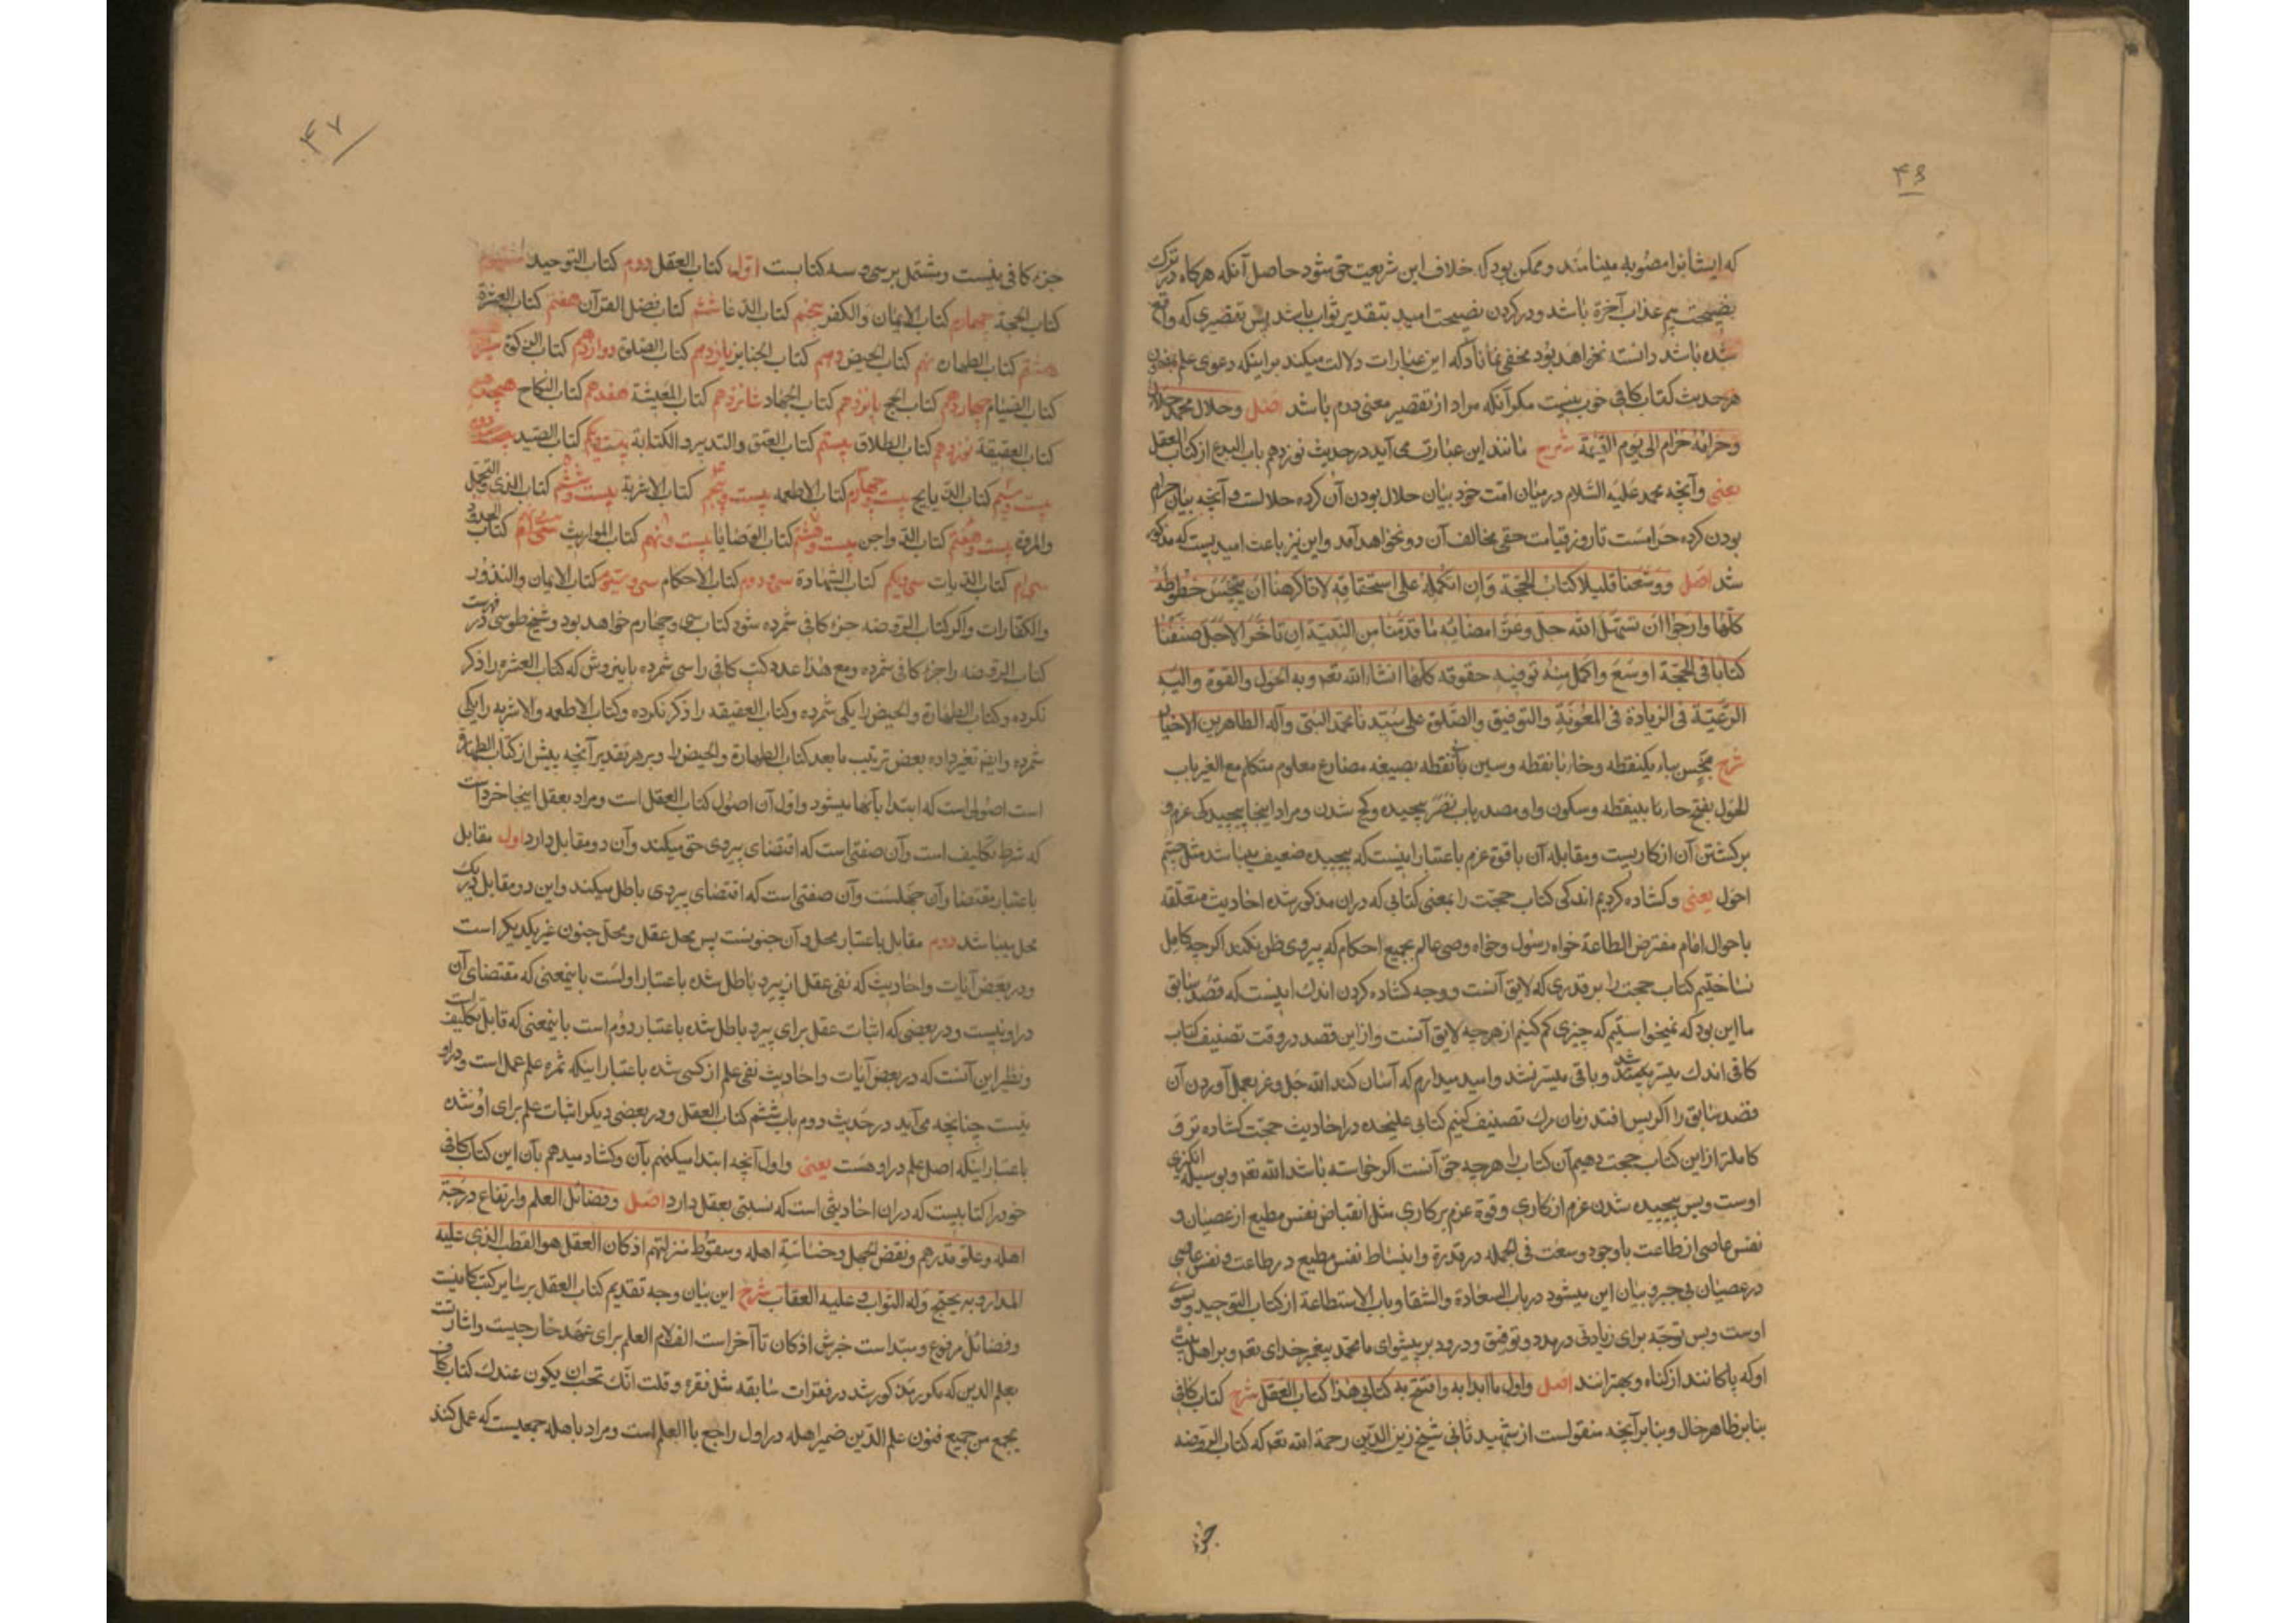 ۴۶
که ایشانرا مصوبه مینامند و ممکن بود که خلاف این شریعت حق شود حاصل آنکه هرکاه در ترک
نصیحت بیم عذاب آخرة باشد و در کردن نصیحت امید بتقدیر ثواب باشد پس تقصیری که واقع
شده باشد دانسته نخواهد بود مخفی نماناد که این عبارات دلالت میکند بر اینکه دعوی علم بمضمون
هر حدیث کتاب کافی خوب نیست مکر آنکه مراد از تقصیر معنی دوم باشد اصل وحلال محمد حلال
وحرامه حرام الی یوم القیمة شرح مانند این عبارت می آید در حدیث نوزدهم باب البدع از کتاب العقل
یعنی وآنچه محمد علیه السلام در میان امت خود بیان حلال بودن آن کرده حلالست و آنچه بیان حرام
بودن کرده حرامست تا روز قیامت حقی مخالف آن دو نخواهد آمد و این نیز باعث امید نیست که مذکور
شد اصل ووسعنا قلیلا کتاب الحجة وان لم نکمله علی استحقاقه لانا کرهنا ان نبخس حظوظه
کلها وارجوا ان یسهل الله جل وعز امضاء ما قدمنا من النیة ان تاخر الاجل صنفنا
کتابا فی الحجة اوسع واکمل منه نوفیه حقوقه کلها انشاء الله تعه وبه الحول والقوة والیه
الرغبة فی الزیادة فی المعونة والتوفیق والصلوة علی سیدنا محمد النبی وآله الطاهرین الاخیار
شرح نبخس بباء یکنقطه وخاء بانقطه وسین بی نقطه بصیغه مضارع معلوم متکلم مع الغیر باب
الحول بفتح حاء بی نقطه وسکون واو مصدر باب نصر پیچیده وکج شدن ومراد اینجا پیچیدکی عزم و
برکشتن آن از کاریست ومقابله آن با قوة عزم باعتبار اینست که پیچیده ضعیف میباشد مثل چشم
احول یعنی وکشاده کردیم اندکی کتاب حجت را بمعنی کتابی که در ان مذکور شده احادیث متعلقه
باحوال امام مفترض الطاعة خواه رسول وخواه وصی عالم بجمیع احکام که پیروی ظن نکند اکرچه کامل
نساختیم کتاب حجت را بر قدری که لایق آنست ووجه کشاده کردن اندک اینست که قصد سابق
ما این بود که نمیخواستیم که چیزی کم کنیم از هرچه لایق آنست واز این قصد در وقت تصنیف کتاب
کافی اندک میسر شد وباقی میسر نشد وامید میدارم که آسان کند الله جل وعز بعمل آوردن آن
قصد سابق را اکر پس افتد زمان مرک تصنیف کنیم کتابی علیحده در احادیث حجت کشاده تر و
کاملتر از این کتاب حجت دهیم آن کتاب را هرچه حق آنست اکر خواسته باشد الله تعه وبوسیله انکیزی
اوست وبس پیچیده شدن عزم از کاری وقوة عزم بر کاری مثل انقباض نفس مطیع از عصیان و
نفس عاصی از طاعت با وجود وسعت فی الجمله در قدرة وانبساط نفس مطیع در طاعت ونفس عاصی
در عصیان بی جبر وبیان این میشود در باب السعادة والشقا وباب الاستطاعة از کتاب التوحید وسوی
اوست وبس توجه برای زیادتی در مدد وتوفیق ودرود بر پیشوای ما محمد پیغمبر خدای تعه وبر اهل بیت
او که پاکانند از کناه وبهترانند اصل واول ما ابدا به وافتتح به کتابی هذا کتاب العقل شرح کتاب کافی
بنابر ظاهر حال وبنابر آنچه منقولست از شهید ثانی شیخ زین الدین رحمة الله تعه که کتاب الروضه
جزء
۴۷
جزء کافی نیست ومشتمل بر سی و سه کتابست اول کتاب العقل دوم کتاب التوحید
کتاب الحجة چهارم کتاب الایمان والکفر پنجم کتاب الدعا ششم کتاب فضل القرآن هفتم کتاب العشرة
هشتم کتاب الطهارة نهم کتاب الحیض دهم کتاب الجنایز یازدهم کتاب الصلوة دوازدهم کتاب الزکوة
کتاب الصیام چهاردهم کتاب الحج پانزدهم کتاب الجهاد شانزدهم کتاب المعیشة هفدهم کتاب النکاح هیجدهم
کتاب العقیقة نوزدهم کتاب الطلاق بیستم کتاب العتق والتدبیر والکتابة بیست ویکم کتاب الصید بیست ودوم
بیست وسیم کتاب الذبایح بیست وچهارم کتاب الاطعمه بیست وپنجم کتاب الاشربة بیست وششم کتاب الزی والتجمل
والمروة بیست وهفتم کتاب الدواجن بیست وهشتم کتاب الوصایا بیست ونهم کتاب المواریث سی ام کتاب الحدود
سی ام کتاب الدیات سی ویکم کتاب الشهادة سی ودوم کتاب الاحکام سی وسیوم کتاب الایمان والنذور
والکفارات واکر کتاب الروضه جزء کافی شمرده شود کتاب سی وچهارم خواهد بود وشیخ طوسی در فهرست
کتاب الروضه را جزء کافی شمرده ومع هذا عدد کتب کافی را سی شمرده باین روش که کتاب العشره را ذکر
نکرده وکتاب الطهارة والحیض را یکی شمرده وکتاب العقیقه را ذکر نکرده وکتاب الاطعمه والاشربه را یکی
شمرده وایضم تغیر داده بعض ترتیب ما بعد کتاب الطهارة والحیض را وبر هر تقدیر آنچه پیش از کتاب الطهارة
است اصولی است که ابتدا بآنها میشود واول آن اصول کتاب العقل است ومراد بعقل اینجا خرد است
که شرط تکلیف است وآن صفتی است که اقتضای پیروی حق میکند وآن دو مقابل دارد اول مقابل
باعتبار مقتضا وآن جهلست وآن صفتی است که اقتضای پیروی باطل میکند واین دو مقابل در یک
محل میباشد دوم مقابل باعتبار محل وآن جنونست پس محل عقل ومحل جنون غیر یکدیکر است
ودر بعض آیات واحادیث که نفی عقل از پیرو باطل شده باعتبار اولست باینمعنی که مقتضای آن
در او نیست ودر بعضی که اثبات عقل برای پیرو باطل شده باعتبار دوم است باینمعنی که قابل تکلیف است
ونظیر این آنست که در بعض آیات واحادیث نفی علم از کسی شده باعتبار اینکه ثمره علم عمل است ودر او
نیست چنانچه می آید در حدیث دوم باب ششم کتاب العقل ودر بعضی دیکر اثبات علم برای او شده
باعتبار اینکه اصل علم در او هست یعنی واول آنچه ابتدا میکنم بآن وکشاد میدهم بآن این کتاب کافی
خود را کتابیست که در ان احادیثی است که نسبتی بعقل دارد اصل وفضائل العلم وارتفاع درجة
اهله وعلو قدرهم ونقص الجهل وخساسة اهله وسقوط منزلتهم اذ کان العقل هو القطب الذی علیه
المدار وبه یحتج وله الثواب وعلیه العقاب شرح این بیان وجه تقدیم کتاب العقل بر سایر کتب کافیست
وفضائل مرفوع ومبتداست خبرش اذ کان تا آخر است الف لام العلم برای عهد خارجیست واشارتست
بعلم الدین که مکرر مذکور شد در فقرات سابقه مثل فقره وقلت انک تحب ان یکون عندک کتاب کاف
یجمع من جمیع فنون علم الدین ضمیر اهله در اول راجع باالعلم است ومراد باهله جمعیست که عمل کنند